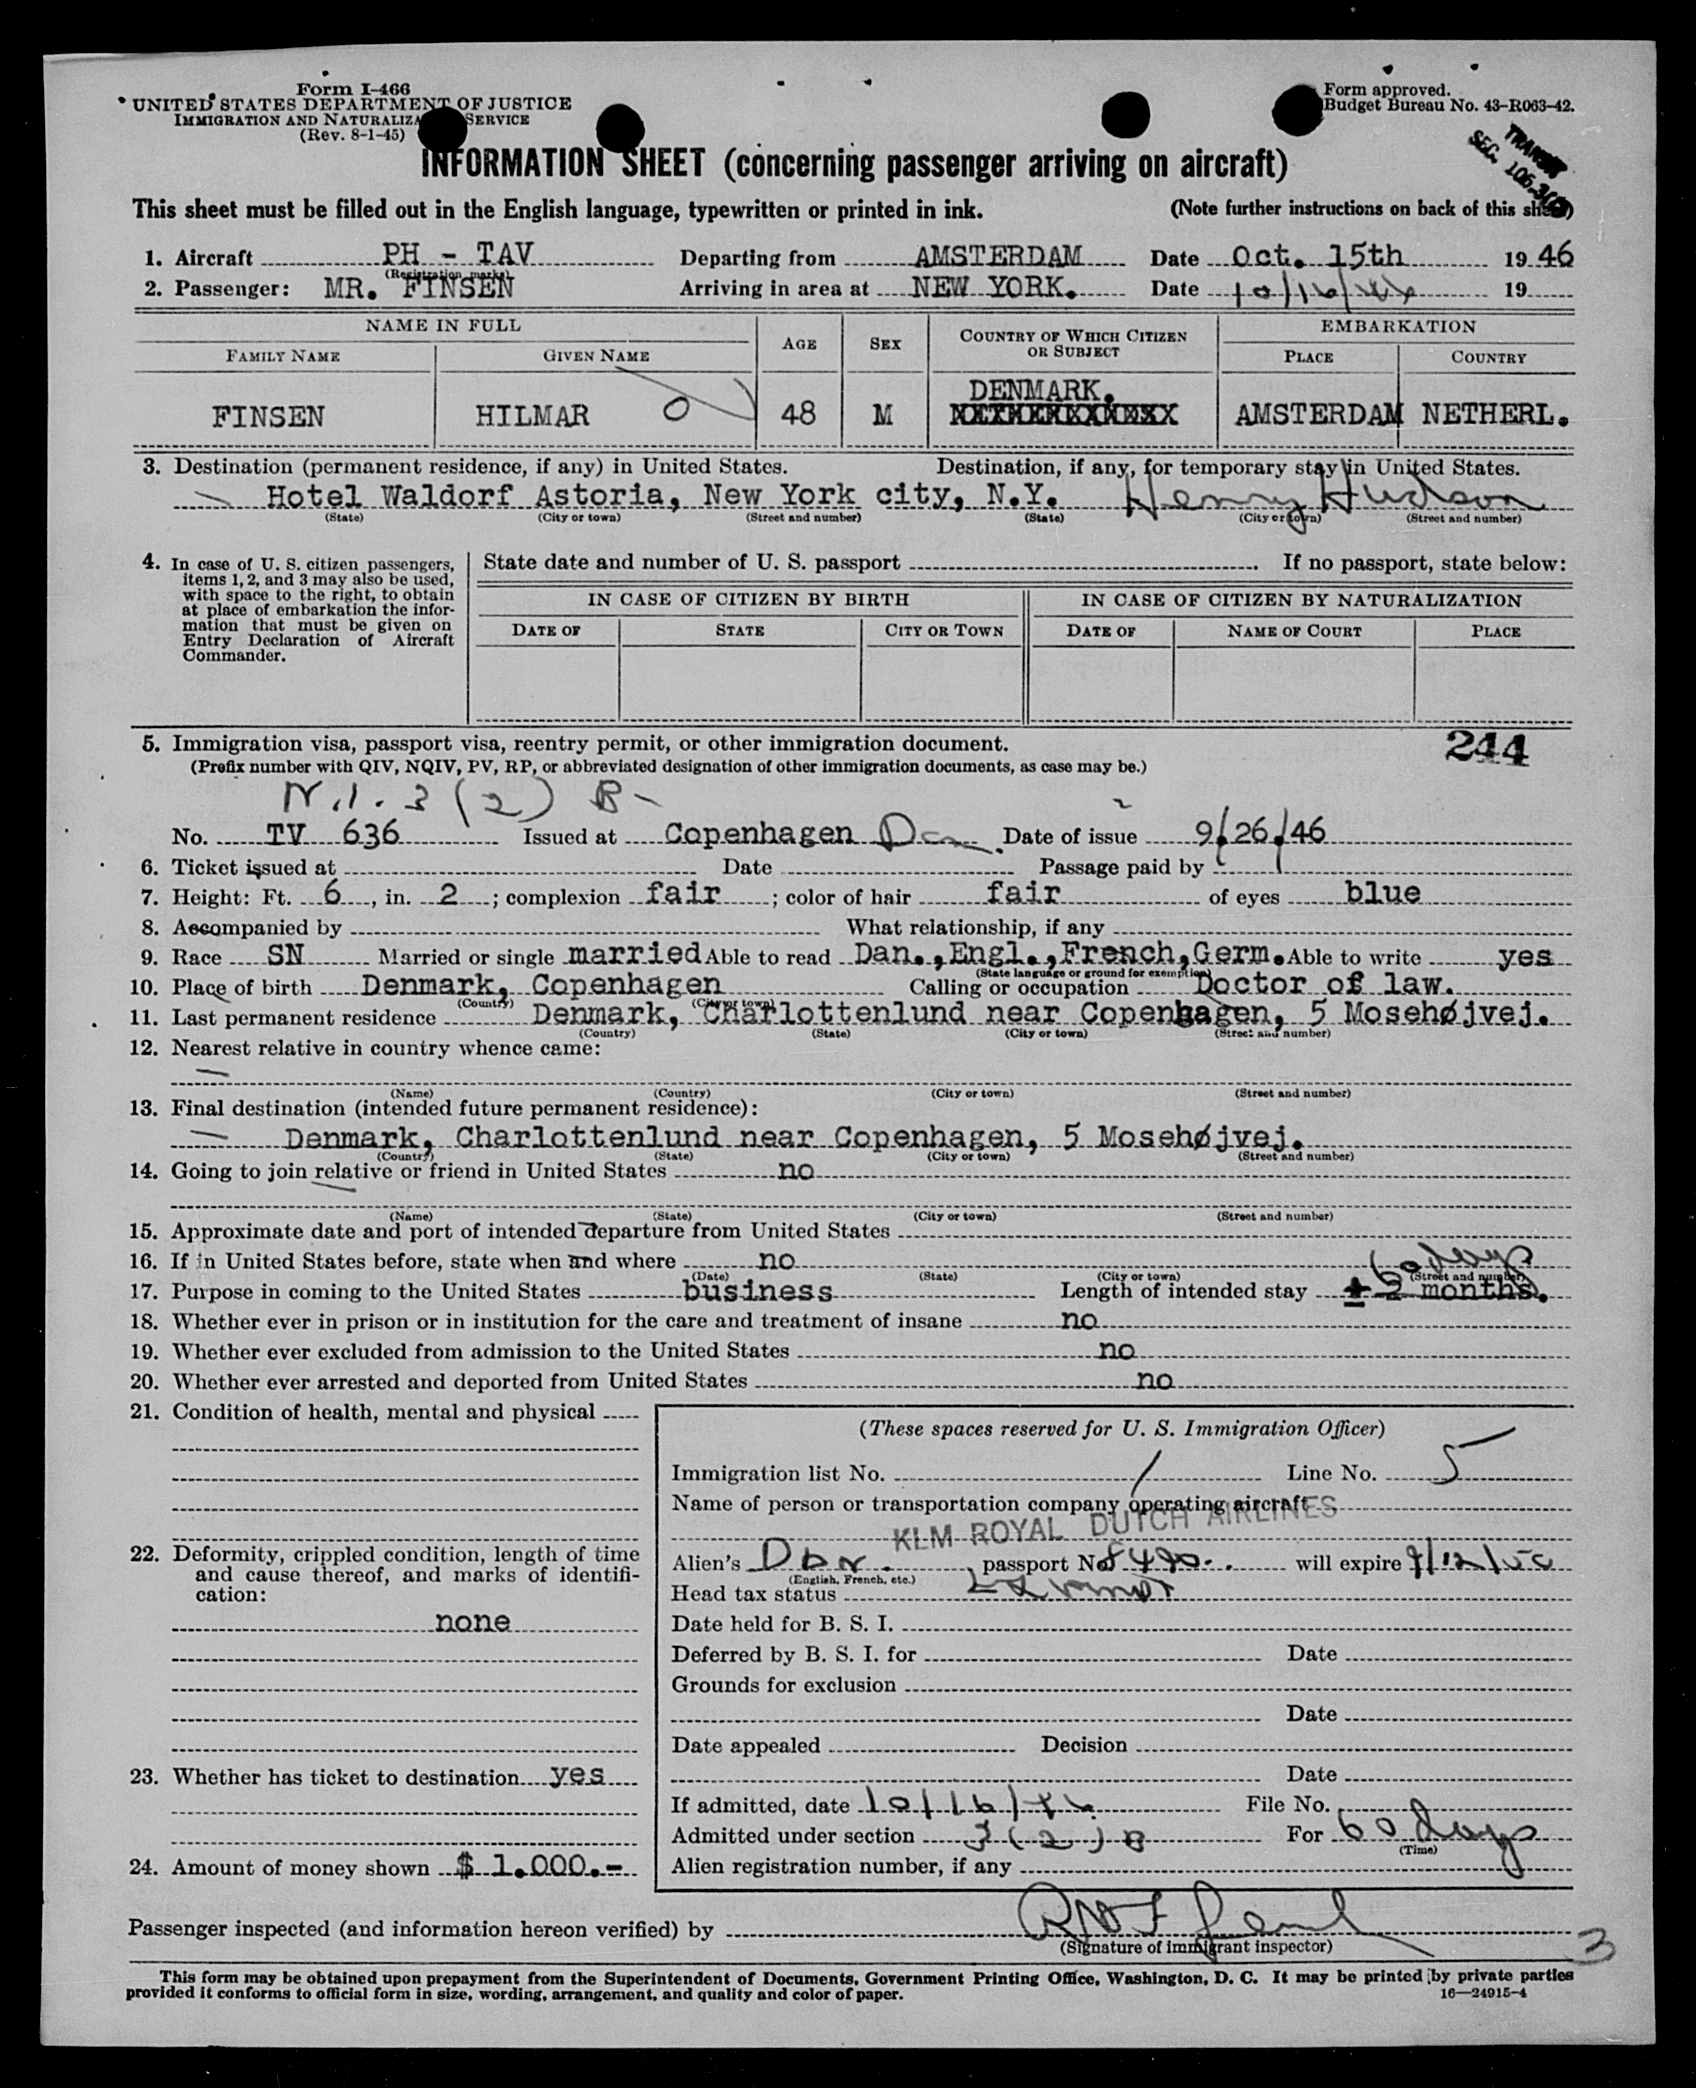 Form I-466
UNITED STATES DEPARTMENT OF JUSTICE
IMMIGRATION AND NATURALIZA SERVICE
(Rev. 8-1-45)
Form approved.
Budget Bureau No. 43-R063-42.
TRANSIT
SEC. 106.3
INFORMATION SHEET (concerning passenger arriving on aircraft)
This sheet must be filled out in the English language, typewritten or printed in ink. (Note further instructions on back of this sheet)
1. Aircraft PH - TAV Departing from AMSTERDAM Date Oct. 15th 1946
(Registration marks)
2. Passenger: MR. FINSEN Arriving in area at NEW YORK. Date 10/16/46 19
NAME IN FULL AGE SEX COUNTRY OF WHICH CITIZEN OR SUBJECT EMBARKATION
FAMILY NAME GIVEN NAME PLACE COUNTRY
DENMARK.
FINSEN HILMAR 48 M AMSTERDAM NETHERL.
3. Destination (permanent residence, if any) in United States. Destination, if any, for temporary stay in United States.
Hotel Waldorf Astoria, New York city, N.Y. Henry Hudson
(State) (City or town) (Street and number) (State) (City or town) (Street and number)
4. In case of U. S. citizen passengers, items 1, 2, and 3 may also be used, with space to the right, to obtain at place of embarkation the information that must be given on Entry Declaration of Aircraft Commander.
State date and number of U. S. passport . If no passport, state below:
IN CASE OF CITIZEN BY BIRTH IN CASE OF CITIZEN BY NATURALIZATION
DATE OF STATE CITY OR TOWN DATE OF NAME OF COURT PLACE
5. Immigration visa, passport visa, reentry permit, or other immigration document. 244
(Prefix number with QIV, NQIV, PV, RP, or abbreviated designation of other immigration documents, as case may be.)
N.I. 3 (2) B-
No. TV 636 Issued at Copenhagen Den. Date of issue 9/26/46
6. Ticket issued at Date Passage paid by
7. Height: Ft. 6, in. 2; complexion fair; color of hair fair of eyes blue
8. Accompanied by What relationship, if any
9. Race SN Married or single married Able to read Dan., Engl., French, Germ. Able to write yes
(State language or ground for exemption)
10. Place of birth Denmark, Copenhagen Calling or occupation Doctor of law.
(Country) (City or town)
11. Last permanent residence Denmark, Charlottenlund near Copenhagen, 5 Mosehøjvej.
(Country) (State) (City or town) (Street and number)
12. Nearest relative in country whence came:
(Name) (Country) (City or town) (Street and number)
13. Final destination (intended future permanent residence):
Denmark, Charlottenlund near Copenhagen, 5 Mosehøjvej.
(Country) (State) (City or town) (Street and number)
14. Going to join relative or friend in United States no
(Name) (State) (City or town) (Street and number)
15. Approximate date and port of intended departure from United States
16. If in United States before, state when and where no
60 days
(Date) (State) (City or town) (Street and number)
17. Purpose in coming to the United States business Length of intended stay ± 2 months.
18. Whether ever in prison or in institution for the care and treatment of insane no
19. Whether ever excluded from admission to the United States no
20. Whether ever arrested and deported from United States no
21. Condition of health, mental and physical
22. Deformity, crippled condition, length of time and cause thereof, and marks of identification:
none
23. Whether has ticket to destination yes
24. Amount of money shown $ 1.000.-
(These spaces reserved for U. S. Immigration Officer)
Immigration list No. 1 Line No. 5
Name of person or transportation company operating aircraft
KLM ROYAL DUTCH AIRLINES
Alien's passport No. 8490 will expire
(English, French, etc.)
Head tax status
Date held for B. S. I.
Deferred by B. S. I. for Date
Grounds for exclusion
Date
Date appealed Decision
Date
If admitted, date 10/16/46 File No.
Admitted under section 3(2)B For 60 days
(Time)
Alien registration number, if any
Passenger inspected (and information hereon verified) by
(Signature of immigrant inspector)
3
This form may be obtained upon prepayment from the Superintendent of Documents, Government Printing Office, Washington, D. C. It may be printed by private parties
provided it conforms to official form in size, wording, arrangement, and quality and color of paper. 16—24915-4